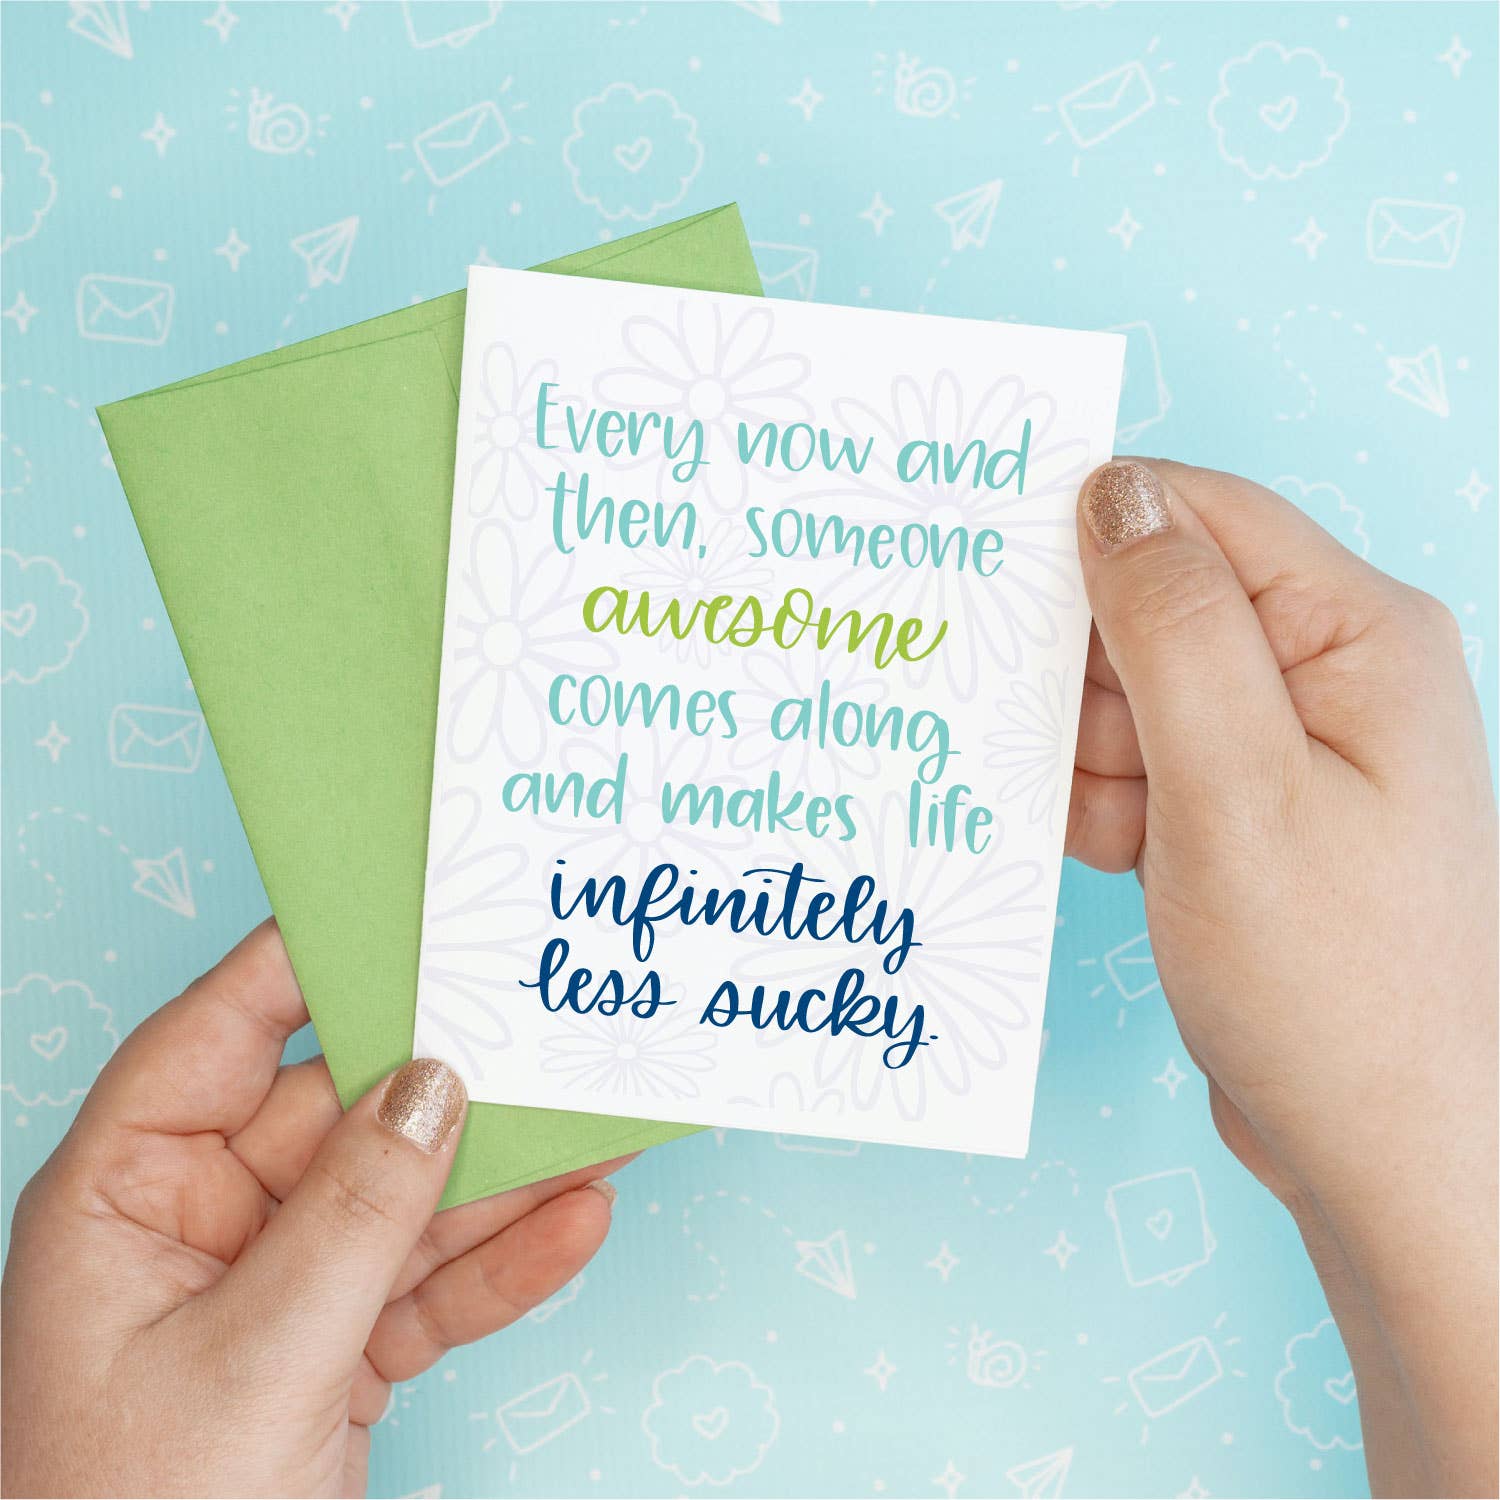 Every now and
then, someone
awesome
comes along
and makes life
infinitely
less sucky.